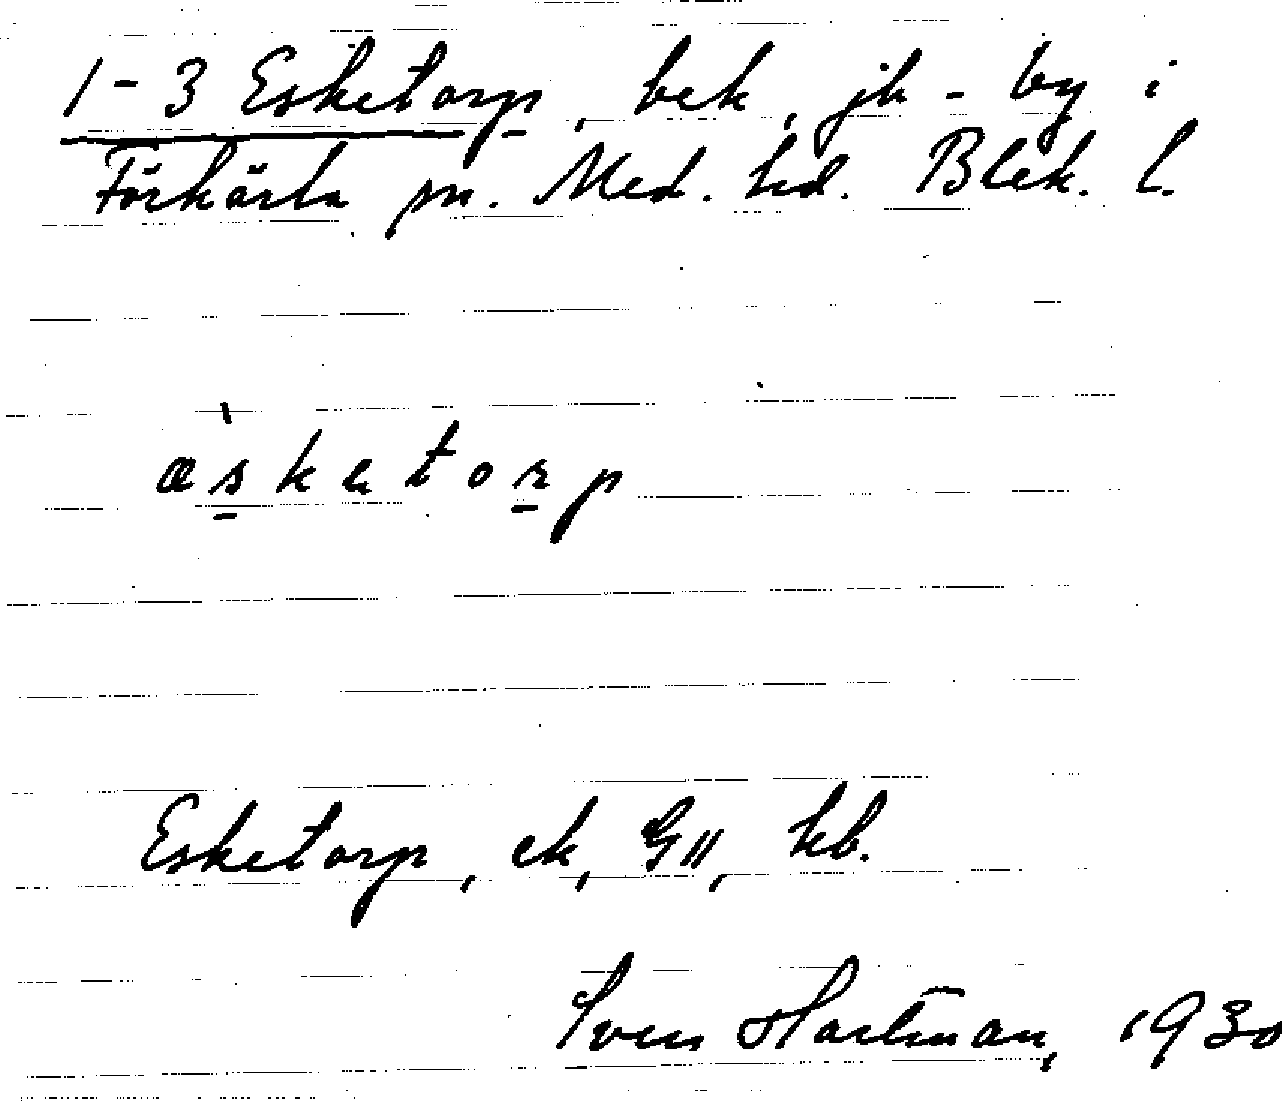 1-3 Esketorp, bek, jb-by i
Förkärla sn. Med. hd. Blek. l.
æsketorp
Esketorp, ek, GII, kb.
Sven Hartman, 1930